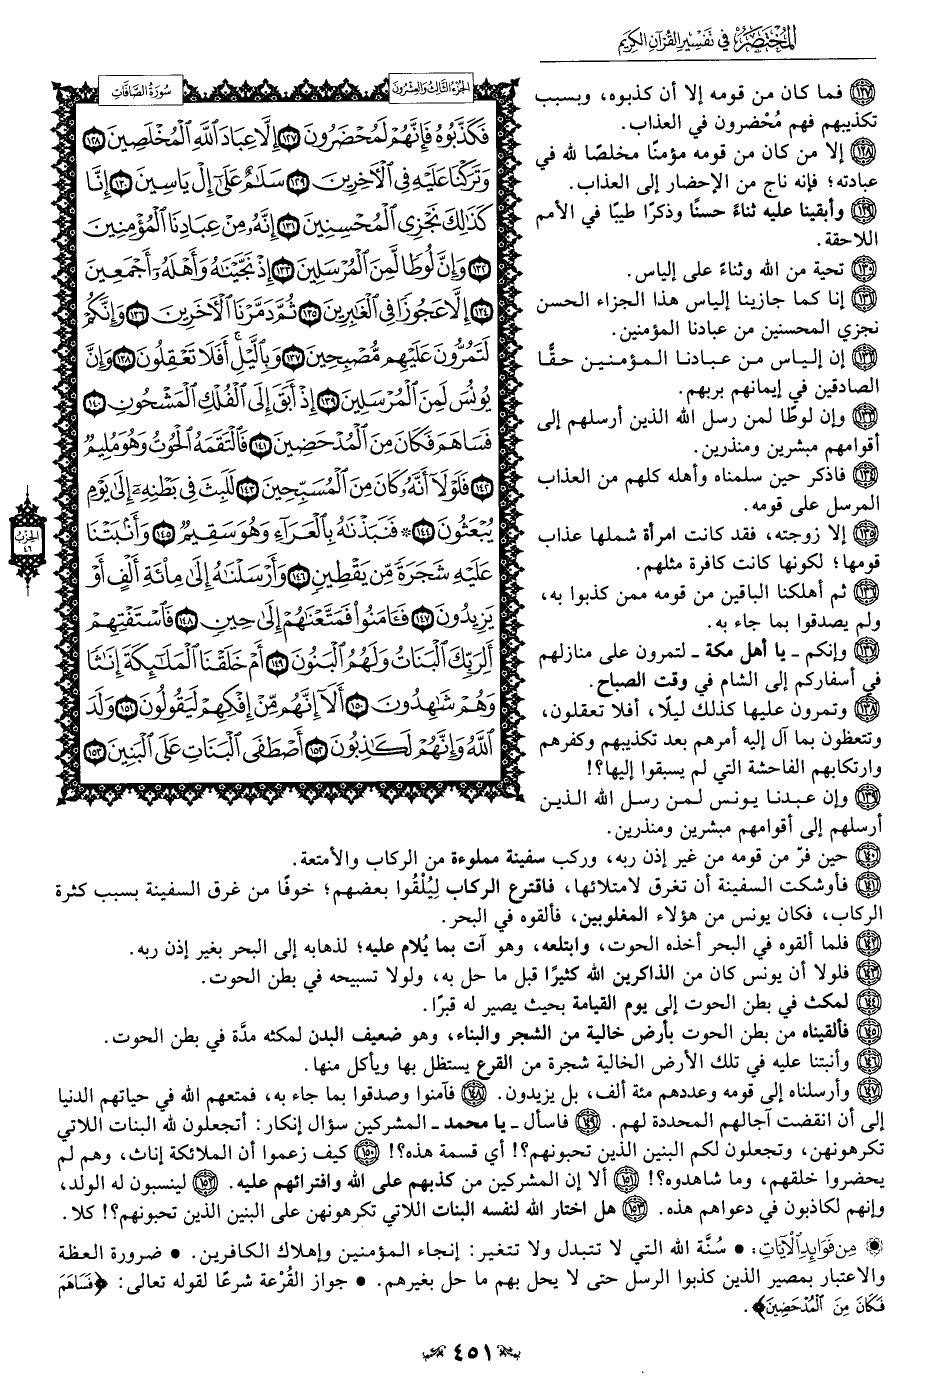 المختصر في تفسير القرآن الكريم
الجزء الثالث والعشرون
سورة الصافات
فَكَذَّبُوهُ فَإِنَّهُمْ لَمُحْضَرُونَ ١٢٧ إِلَّا عِبَادَ ٱللَّهِ ٱلْمُخْلَصِينَ ١٢٨
وَتَرَكْنَا عَلَيْهِ فِي ٱلْأَخِرِينَ ١٢٩ سَلَٰمٌ عَلَىٰٓ إِلْ يَاسِينَ ١٣٠ إِنَّا
كَذَٰلِكَ نَجْزِي ٱلْمُحْسِنِينَ ١٣١ إِنَّهُۥ مِنْ عِبَادِنَا ٱلْمُؤْمِنِينَ
١٣٢ وَإِنَّ لُوطًا لَّمِنَ ٱلْمُرْسَلِينَ ١٣٣ إِذْ نَجَّيْنَٰهُ وَأَهْلَهُۥٓ أَجْمَعِينَ
١٣٤ إِلَّا عَجُوزًا فِي ٱلْغَٰبِرِينَ ١٣٥ ثُمَّ دَمَّرْنَا ٱلْأَخَرِينَ ١٣٦ وَإِنَّكُمْ
لَتَمُرُّونَ عَلَيْهِم مُّصْبِحِينَ ١٣٧ وَبِٱلَّيْلِۚ أَفَلَا تَعْقِلُونَ ١٣٨ وَإِنَّ
يُونُسَ لَمِنَ ٱلْمُرْسَلِينَ ١٣٩ إِذْ أَبَقَ إِلَى ٱلْفُلْكِ ٱلْمَشْحُونِ ١٤٠
فَسَاهَمَ فَكَانَ مِنَ ٱلْمُدْحَضِينَ ١٤١ فَٱلْتَقَمَهُ ٱلْحُوتُ وَهُوَ مُلِيمٌ
١٤٢ فَلَوْلَآ أَنَّهُۥ كَانَ مِنَ ٱلْمُسَبِّحِينَ ١٤٣ لَلَبِثَ فِي بَطْنِهِۦٓ إِلَىٰ يَوْمِ
يُبْعَثُونَ ١٤٤ ۞ فَنَبَذْنَٰهُ بِٱلْعَرَآءِ وَهُوَ سَقِيمٌ ١٤٥ وَأَنۢبَتْنَا
عَلَيْهِ شَجَرَةً مِّن يَقْطِينٍ ١٤٦ وَأَرْسَلْنَٰهُ إِلَىٰ مِاْئَةِ أَلْفٍ أَوْ
يَزِيدُونَ ١٤٧ فَـَٔامَنُوا۟ فَمَتَّعْنَٰهُمْ إِلَىٰ حِينٍ ١٤٨ فَٱسْتَفْتِهِمْ
أَلِرَبِّكَ ٱلْبَنَاتُ وَلَهُمُ ٱلْبَنُونَ ١٤٩ أَمْ خَلَقْنَا ٱلْمَلَٰٓئِكَةَ إِنَٰثًا
وَهُمْ شَٰهِدُونَ ١٥٠ أَلَآ إِنَّهُم مِّنْ إِفْكِهِمْ لَيَقُولُونَ ١٥١ وَلَدَ
ٱللَّهُ وَإِنَّهُمْ لَكَٰذِبُونَ ١٥٢ أَصْطَفَى ٱلْبَنَاتِ عَلَى ٱلْبَنِينَ ١٥٣
الحزب
٤٦
١٢٧ فما كان من قومه إلا أن كذبوه، وبسبب
تكذيبهم فهم مُحْضرون في العذاب.
١٢٨ إلا من كان من قومه مؤمنًا مخلصًا لله في
عبادته؛ فإنه ناج من الإحضار إلى العذاب.
١٢٩ وأبقينا عليه ثناءً حسنًا وذكرًا طيبًا في الأمم
اللاحقة.
١٣٠ تحية من الله وثناءً على إلياس.
١٣١ إنا كما جازينا إلياس هذا الجزاء الحسن
نجزي المحسنين من عبادنا المؤمنين.
١٣٢ إن إلياس من عبادنا المؤمنين حقًّا
الصادقين في إيمانهم بربهم.
١٣٣ وإن لوطًا لمن رسل الله الذين أرسلهم إلى
أقوامهم مبشرين ومنذرين.
١٣٤ فاذكر حين سلمناه وأهله كلهم من العذاب
المرسل على قومه.
١٣٥ إلا زوجته، فقد كانت امرأة شملها عذاب
قومها؛ لكونها كانت كافرة مثلهم.
١٣٦ ثم أهلكنا الباقين من قومه ممن كذبوا به،
ولم يصدقوا بما جاء به.
١٣٧ وإنكم ـ يا أهل مكة ـ لتمرون على منازلهم
في أسفاركم إلى الشام في وقت الصباح.
١٣٨ وتمرون عليها كذلك ليلًا، أفلا تعقلون،
وتتعظون بما آل إليه أمرهم بعد تكذيبهم وكفرهم
وارتكابهم الفاحشة التي لم يسبقوا إليها؟!
١٣٩ وإن عبدنا يونس لمن رسل الله الذين
أرسلهم إلى أقوامهم مبشرين ومنذرين.
١٤٠ حين فرّ من قومه من غير إذن ربه، وركب سفينة مملوءة من الركاب والأمتعة.
١٤١ فأوشكت السفينة أن تغرق لامتلائها، فاقترع الركاب لِيُلْقُوا بعضهم؛ خوفًا من غرق السفينة بسبب كثرة
الركاب، فكان يونس من هؤلاء المغلوبين، فألقوه في البحر.
١٤٢ فلما ألقوه في البحر أخذه الحوت، وابتلعه، وهو آت بما يُلام عليه؛ لذهابه إلى البحر بغير إذن ربه.
١٤٣ فلولا أن يونس كان من الذاكرين الله كثيرًا قبل ما حل به، ولولا تسبيحه في بطن الحوت.
١٤٤ لمكث في بطن الحوت إلى يوم القيامة بحيث يصير له قبرًا.
١٤٥ فألقيناه من بطن الحوت بأرض خالية من الشجر والبناء، وهو ضعيف البدن لمكثه مدَّة في بطن الحوت.
١٤٦ وأنبتنا عليه في تلك الأرض الخالية شجرة من القرع يستظل بها ويأكل منها.
١٤٧ وأرسلناه إلى قومه وعددهم مئة ألف، بل يزيدون. ١٤٨ فآمنوا وصدقوا بما جاء به، فمتعهم الله في حياتهم الدنيا
إلى أن انقضت آجالهم المحددة لهم. ١٤٩ فاسأل ـ يا محمد ـ المشركين سؤال إنكار: أتجعلون لله البنات اللاتي
تكرهونهن، وتجعلون لكم البنين الذين تحبونهم؟! أي قسمة هذه؟! ١٥٠ كيف زعموا أن الملائكة إناث، وهم لم
يحضروا خلقهم، وما شاهدوه؟! ١٥١ ألا إن المشركين من كذبهم على الله وافترائهم عليه. ١٥٢ لينسبون له الولد،
وإنهم لكاذبون في دعواهم هذه. ١٥٣ هل اختار الله لنفسه البنات اللاتي تكرهونهن على البنين الذين تحبونهم؟! كلا.
من فوائد الآيات: • سُنَّة الله التي لا تتبدل ولا تتغير: إنجاء المؤمنين وإهلاك الكافرين. • ضرورة العظة
والاعتبار بمصير الذين كذبوا الرسل حتى لا يحل بهم ما حل بغيرهم. • جواز القُرْعة شرعًا لقوله تعالى: ﴿فَسَاهَمَ
فَكَانَ مِنَ ٱلْمُدْحَضِينَ﴾.
٤٥١